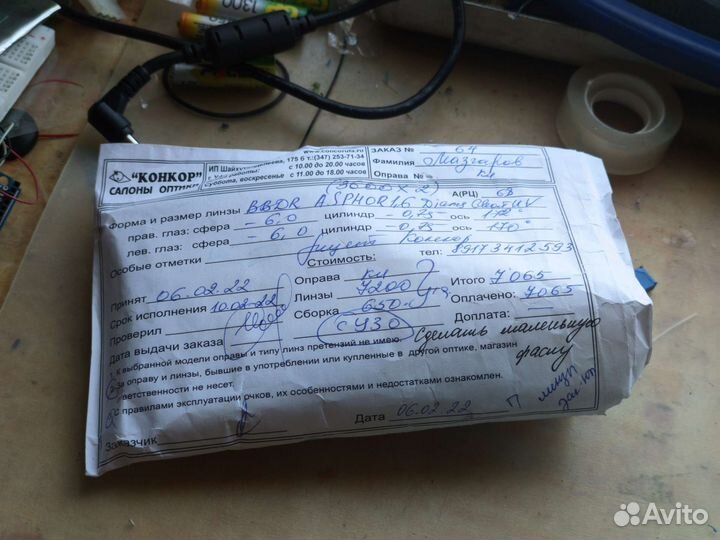 1300
www.concoruta.ru
ИП Шайхутдинова 175 б т.(347) 253-71-34
с 10.00 до 20.00 часов
суббота, воскресенье с 11.00 до 18.00 часов
"КОНКОР"
САЛОНЫ ОПТИКИ
ЗАКАЗ № 64
Фамилия Мазгаров
Оправа № кл
(3600 x 2)
А(РЦ) 68
Форма и размер линзы BBDR ASPHOR 1.6 UV
прав. глаз: сфера - 6,0 цилиндр - 0,75 ось 170°
лев. глаз: сфера - 6,0 цилиндр - 0,75 ось 170°
Особые отметки Конкор тел: 89173412593
Стоимость:
Принят 06.02.22 Оправа кл
Срок исполнения 10.02.22 Линзы 7200 Итого 7065
Проверил Сборка 650 Оплачено: 7065
Дата выдачи заказа с УЗО Доплата:
Сделать маленькую
фаску
К выбранной модели оправы и типу линз претензий не имею.
За оправу и линзы, бывшие в употреблении или купленные в другой оптике, магазин
ответственности не несет.
С правилами эксплуатации очков, их особенностями и недостатками ознакомлен.
Заказчик Дата 06.02.22
Avito